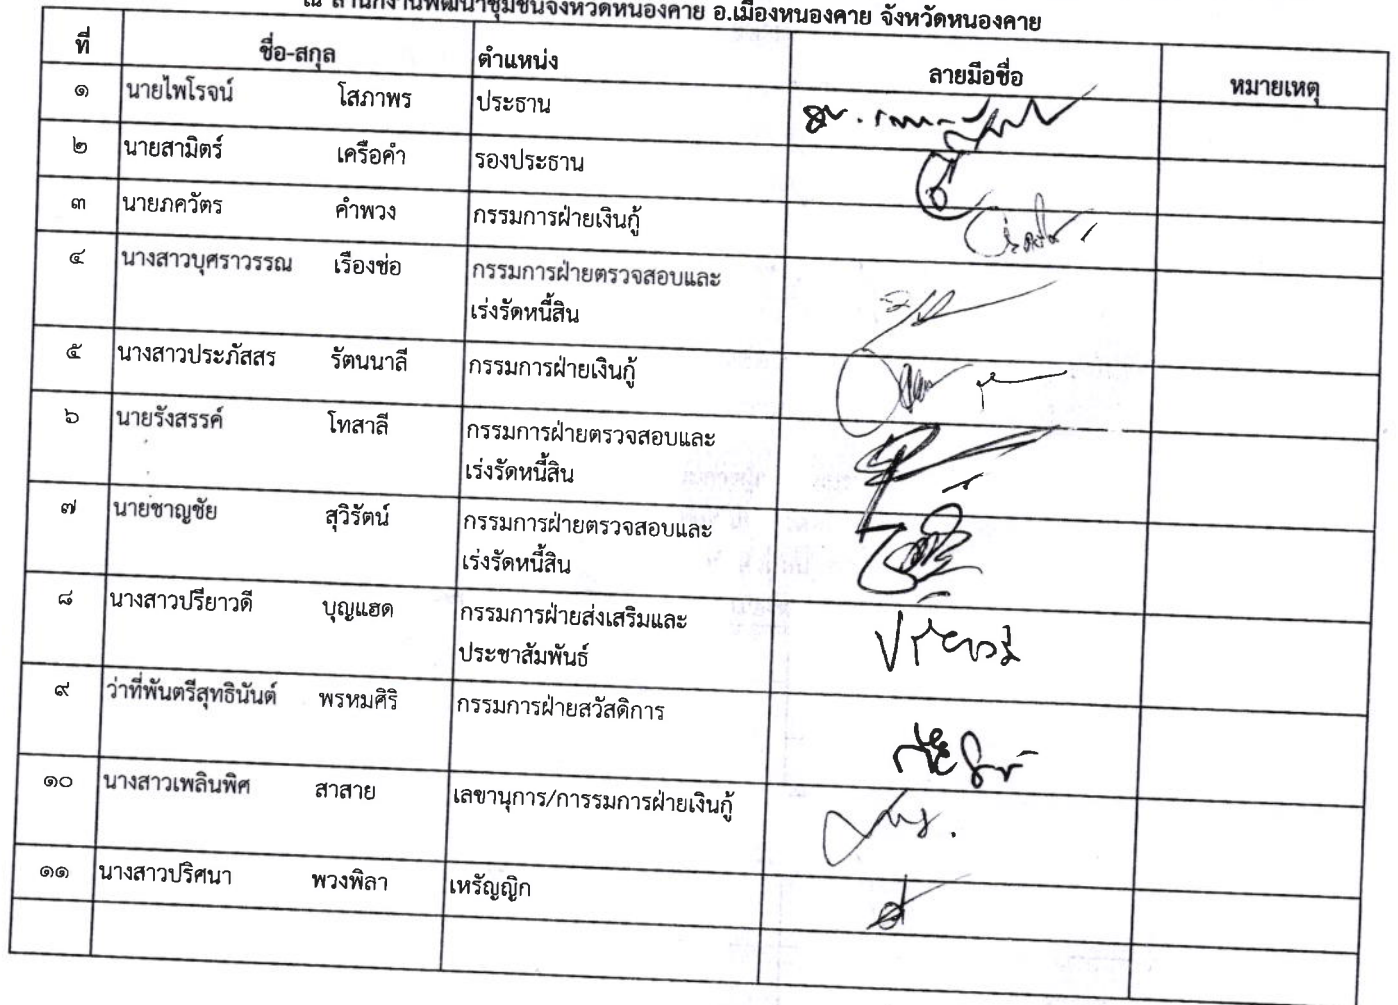 ณ สำนักงานพัฒนาชุมชนจังหวัดหนองคาย อ.เมืองหนองคาย จังหวัดหนองคาย
ที่ ชื่อ-สกุล ตำแหน่ง ลายมือชื่อ หมายเหตุ
๑ นายไพโรจน์ โสภาพร ประธาน
๒ นายสามิตร์ เครือคำ รองประธาน
๓ นายภควัตร คำพวง กรรมการฝ่ายเงินกู้
๔ นางสาวบุศราวรรณ เรืองช่อ กรรมการฝ่ายตรวจสอบและ
เร่งรัดหนี้สิน
๕ นางสาวประภัสสร รัตนนาลี กรรมการฝ่ายเงินกู้
๖ นายรังสรรค์ โทสาลี กรรมการฝ่ายตรวจสอบและ
เร่งรัดหนี้สิน
๗ นายชาญชัย สุวิรัตน์ กรรมการฝ่ายตรวจสอบและ
เร่งรัดหนี้สิน
๘ นางสาวปรียาวดี บุญแฮด กรรมการฝ่ายส่งเสริมและ
ประชาสัมพันธ์
๙ ว่าที่พันตรีสุทธินันต์ พรหมศิริ กรรมการฝ่ายสวัสดิการ
๑๐ นางสาวเพลินพิศ สาสาย เลขานุการ/การรมการฝ่ายเงินกู้
๑๑ นางสาวปริศนา พวงพิลา เหรัญญิก